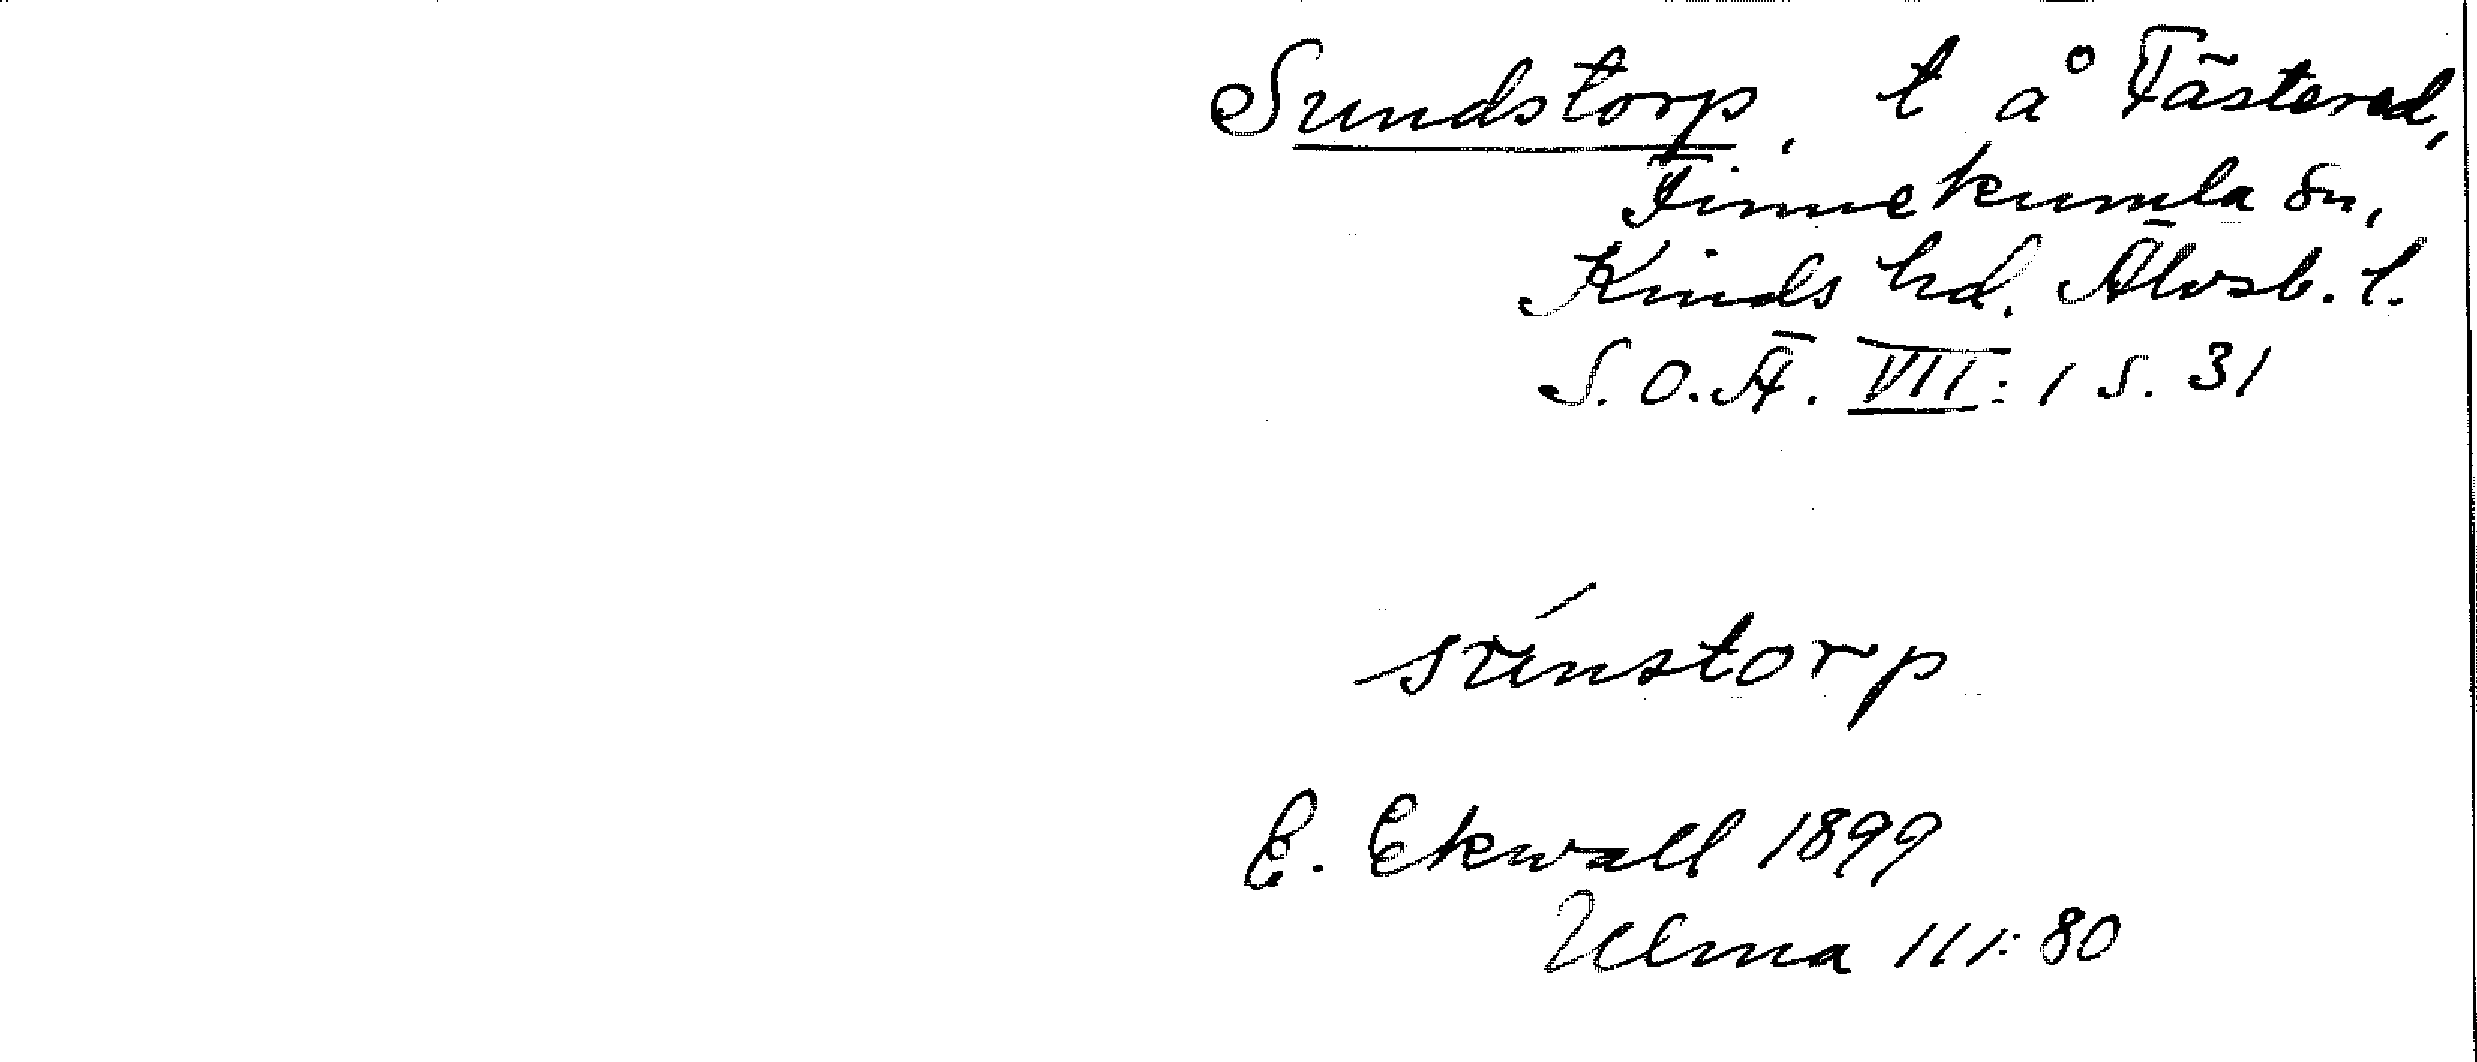 Sundstorp, t å Fästered,
Finnekumla sn,
Kinds hd. Älvsb. l.
S.O.Ä. VII: 1 s. 31
súnstorp
E. Ekwall 1899
Ulma 111:80